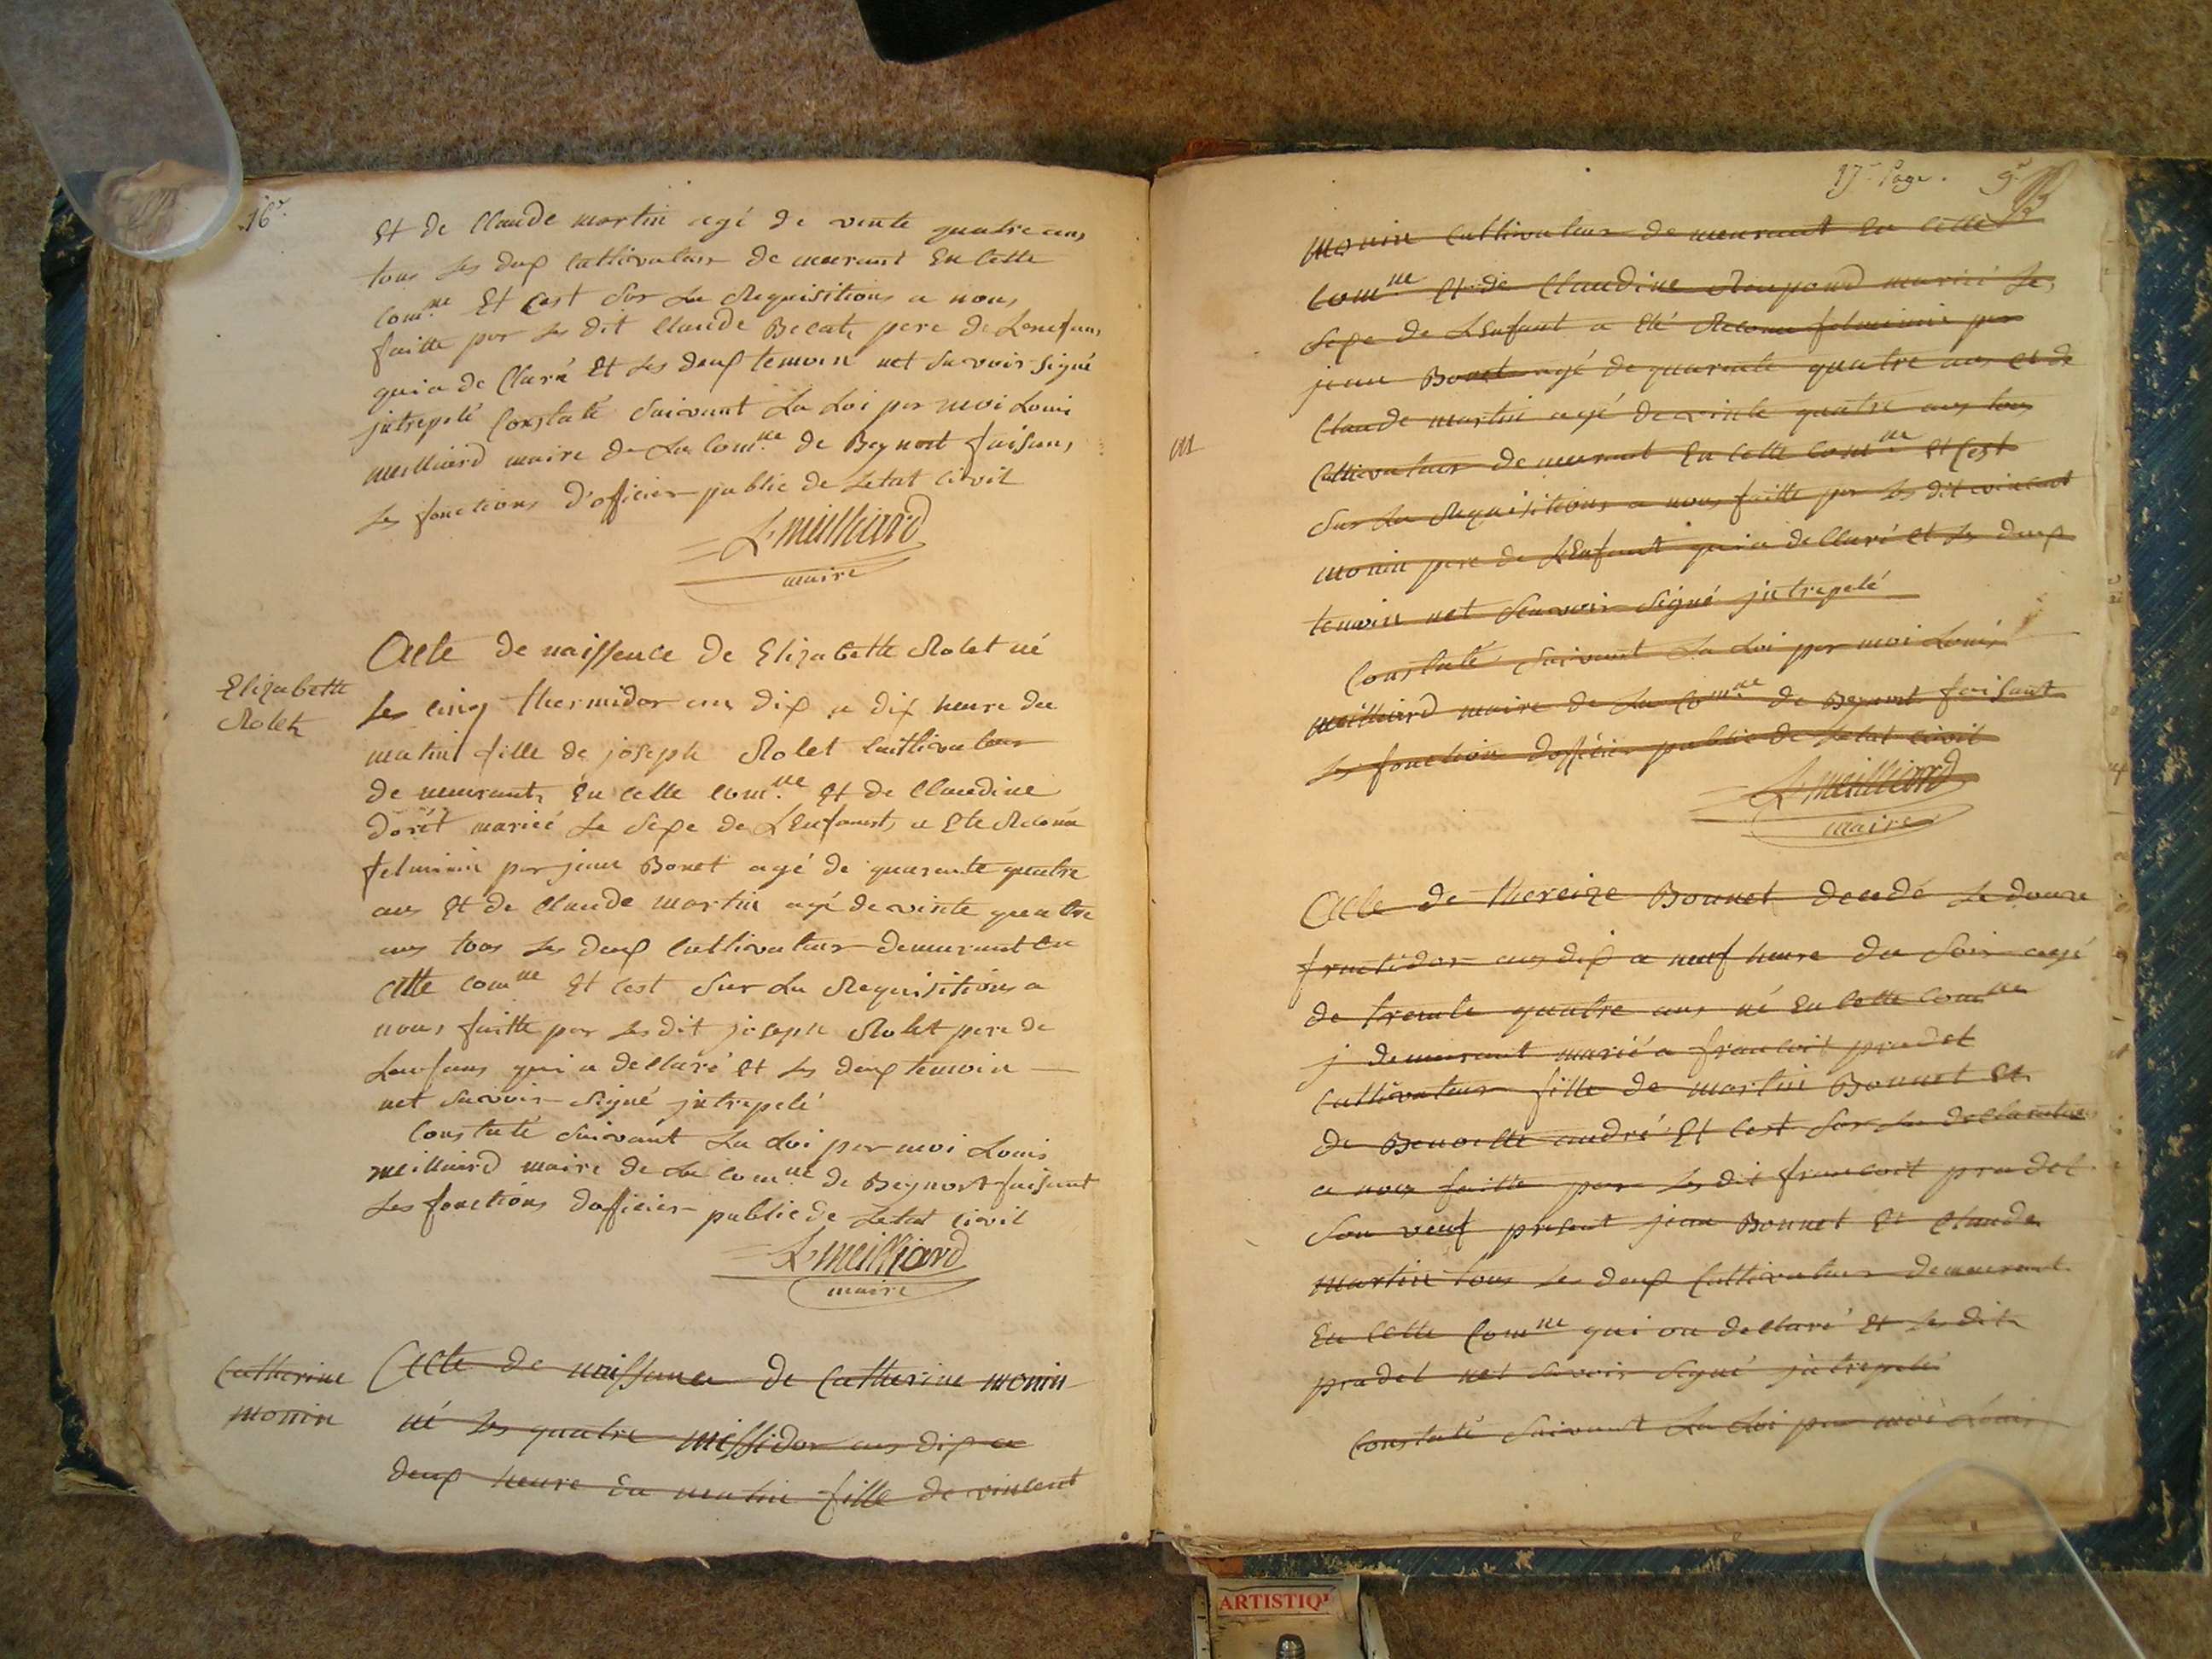 16e.
Et de Claude martin agé de vente quatre ans
tous les deux Cattivateur de meurant En Cette
Com.ne Et Cest Sur La Requisitions a nous
faitte par les dit Claude Becat pere de Lenefans
qui a de Claré Et les deux temoin net Savoir Signé
jntrepelé Constaté Suivant La Loi par moi Louis
meilliard maire de La Com.ne de Beynost faisans
les fonctions d'oficier public de Letat Civil
L. meilliard
maire
Elizabette
Rolet
Acte de naissence de Elizabette Rolet né
les cinq thermidor an dix a dix heure du
matin fille de joseph Rolet Cultivateur
de meurant En Cette Com.ne Et de Claudine
Dorêt marieé Le Sexe de L'Enfant a Eté Reconu
felminin par jean Bonet agé de quarante quatre
ans Et de Claude martin agé de vinte quattre
ans tous les deux Cattivateur demeurant En
Cette Com.ne Et Cest Sur La Requisitions a
nous faitte par les dit joseph Rolet pere de
Lenfans qui a dellaré Et les deux temoin
net Savoir Signé jntrepelé
Constaté Suivant La Loi par moi Louis
meilliard maire de La Com.ne de Beynost faisant
les fonctions dofficier public de Letat Civil
L. meilliard
maire
Catherine
monin
Acte de naissance de Catherine monin
né les quatre missidor ans dix a
deux heure du matin fille de vincent
17e Page. 9e
monin Cattivateur de meurant En Cette
Com.ne Et de Claudine marieé Le
Sexe de L'Enfant a Eté Reconu felminin par
jean Bonet agé de quarente quatre ans et de
Claude martin agé de vinte quatre ans tous
Cattivateur de meurant En Cette Com.ne Et Cest
Sur La Requisitions a nous faitte par les dit vincent
monin pere de L'Enfant qui a dellaré Et les deux
temoin net Savoir Signé jntrepelé
Constaté Suivant La Loi par moi Louis
meilliard maire de La Com.ne de Beynost faisant
les fonction dofficier public de Letat Civil
L. meilliard
maire
m
Acte de thereize Bonnet decedé Le douze
fructidor ans dix a neuf heure du Soir agé
de trente quatre ans né En Cette Com.ne
j demeurant marié a francoit pradel
Cattivateur fille de martin Bonnet Et
de Benoitte andré Et Cest Sur La dellaration
a nous faitte par les dit francoit pradel
Son veuf present jean Bonnet Et Claude
martin tous les deux Cattivateur demeurant
En Cette Com.ne qui on dellaré Et les dit
pradel net Savoir Signé jntrepelé
Constaté Suivant La Loi par moi Louis
ARTISTIQ